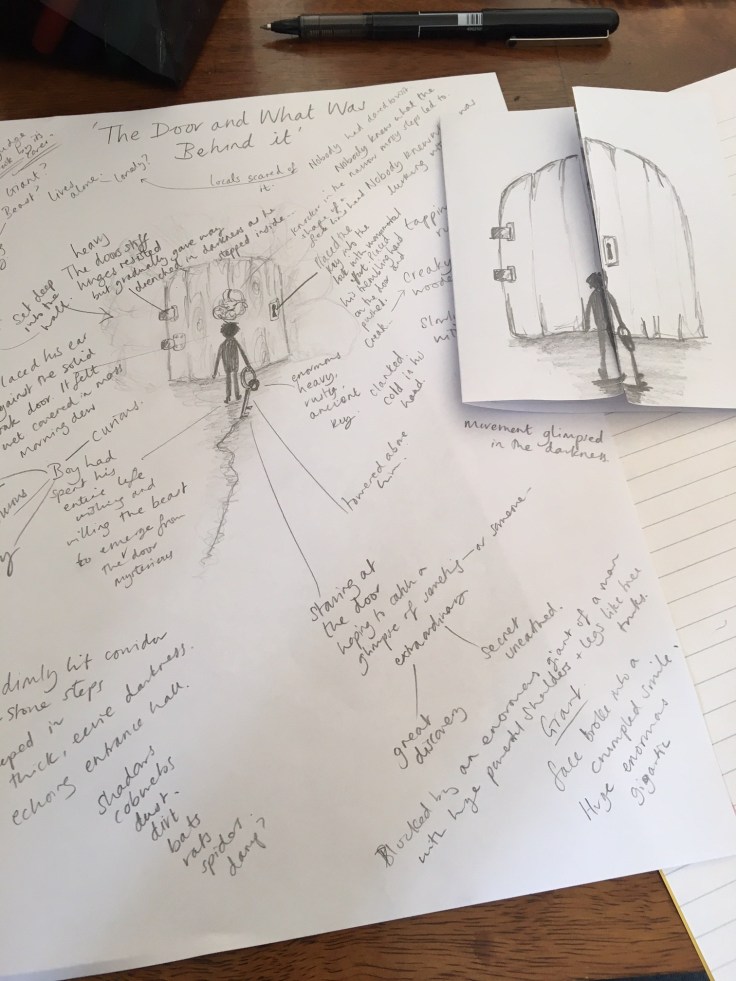 'The Door and What Was
Behind it'
Giant?
Beast?
Lived
alone - lonely?
locals scared of
it.
Nobody had dared to
Nobody knew what the
narrow mossy steps led to.
Nobody knew
was
lurking
Knocker in the
shape of a
heavy
The door stiff
hinges resisted
but gradually gave way
drenched in darkness as he
stepped inside...
Set deep
into the
wall.
Placed the
key into the
lock with
his trembling hand
on the door and
pushed.
Creak
Creaky
wooden
Slowly
placed his ear
against the solid
oak door. It felt
wet covered in moss
morning dew
enormous
heavy,
rusty,
ancient
key.
clanked
cold in his
hand.
curious.
Boy had
spent his
entire life
wishing and
willing the beast
to emerge from
the door
mysterious
towered above
him.
movement glimpsed
in the darkness.
staring at
the door
hoping to catch a
glimpse of something - or someone -
extraordinary
secret
unearthed.
great
discovery
dimly lit corridor
stone steps
thick, eerie darkness.
echoing entrance hall.
shadows
cobwebs
dust.
dirt
bats
rats
spiders
damp?
Blocked by an enormous giant of a man
with huge powerful shoulders + legs like tree
trunks.
Giant.
face broke into a
crumpled smile.
Huge enormous
gigantic